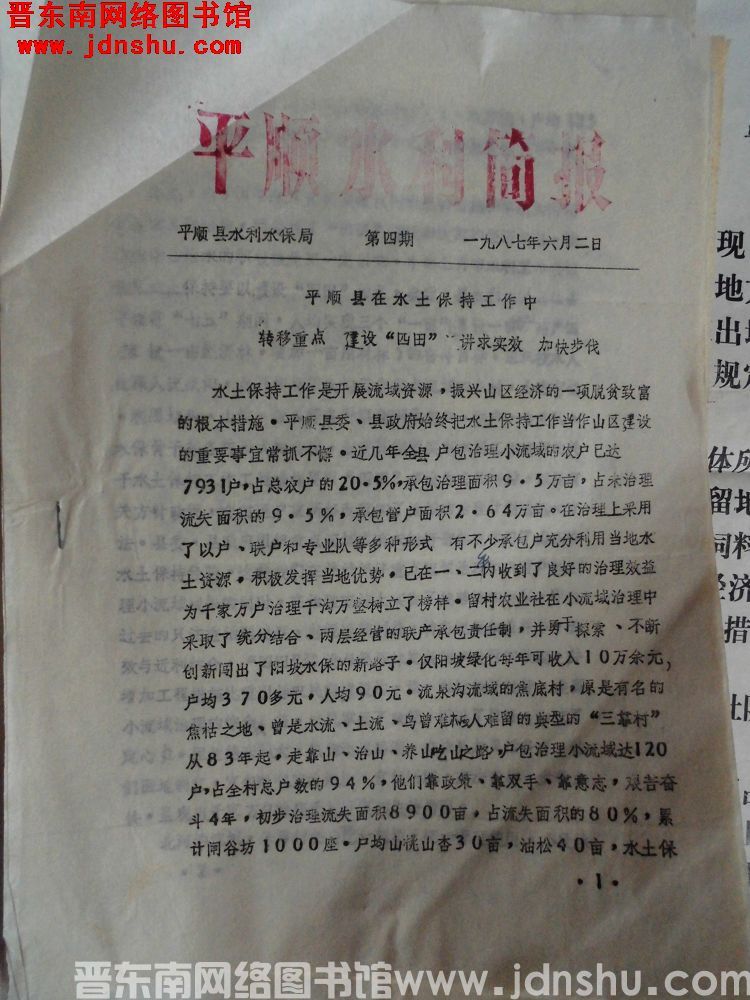 晋东南网络图书馆
www.jdnshu.com
平顺水利简报
平顺县水利水保局 第四期 一九八七年六月二日
平顺县在水土保持工作中
转移重点 建设“四田” 讲求实效 加快步伐
水土保持工作是开展流域资源，振兴山区经济的一项脱贫致富
的根本措施。平顺县委、县政府始终把水土保持工作当作山区建设
的重要事宜常抓不懈。近几年全县户包治理小流域的农户已达
7931户，占总农户的20.5%，承包治理面积9.5万亩，占未治理
流失面积的9.5%，承包管户面积2.64万亩。在治理上采用
了以户、联户和专业队等多种形式 有不少承包户充分利用当地水
土资源。积极发挥当地优势。已在一、二年内收到了良好的治理效益
为千家万户治理千沟万壑树立了榜样。留村农业社在小流域治理中
采取了统分结合、两层经营的联产承包责任制，并勇于探索、不断
创新闯出了阳坡水保的新路子。仅阳坡绿化每年可收入10万余元，
户均370多元，人均90元。流泉沟流域的焦底村，原是有名的
焦枯之地、曾是水流、土流、鸟曾难栖人难留的典型的“三靠村”
从83年起。走靠山、治山、养山吃山之路，户包治理小流域达120
户，占全村总户数的94%，他们靠政策、靠双手、靠意志，艰苦奋
斗4年，初步治理流失面积8900亩，占流失面积的80%，累
计闸谷坊1000座。户均山桃山杏30亩，油松40亩，水土保
·1·
现
地方
出地
规定
体所
留地
饲料
经济
措
晋东南网络图书馆www.jdnshu.com